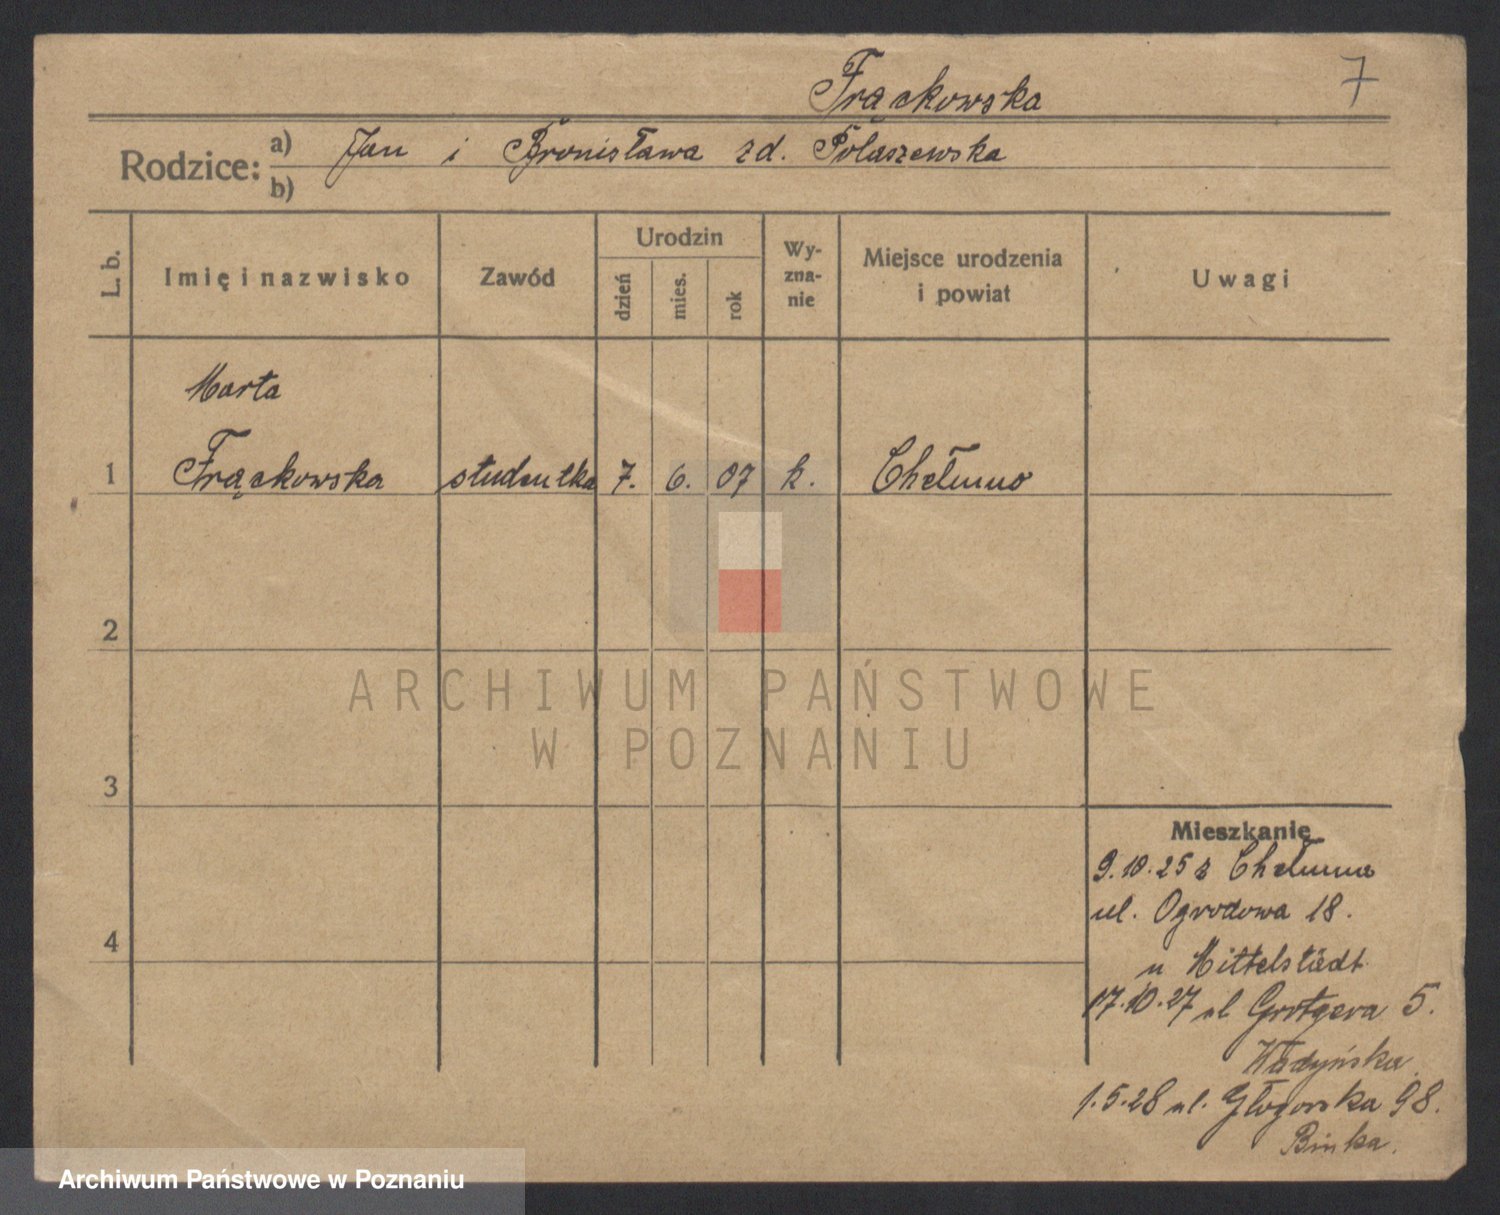 Frąckowska
7
Rodzice: a) Jan i Bronisława zd. Polaszewska
b)
L. b.
Imię i nazwisko
Zawód
Urodzin
dzień
mies.
rok
Wy-
zna-
nie
Miejsce urodzenia
i powiat
Uwagi
Marta
1 Frąckowska studentka 7. 6. 07 k. Chełmno
2
ARCHIWUM PAŃSTWOWE
W POZNANIU
3
Mieszkanie
9.10.25 z Chełmna
ul. Ogrodowa 18.
4
u Mittelstädt
17.10.27 ul Grotgera 5.
1.5.28 ul. Głogowska 98.
Binka.
Archiwum Państwowe w Poznaniu